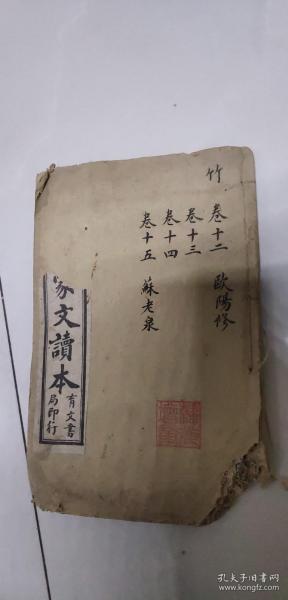 竹
卷十二 歐陽修
卷十三
卷十四
卷十五 蘇老泉
家文讀本
育文書
局印行
孔夫子旧书网
www.kongfz.com